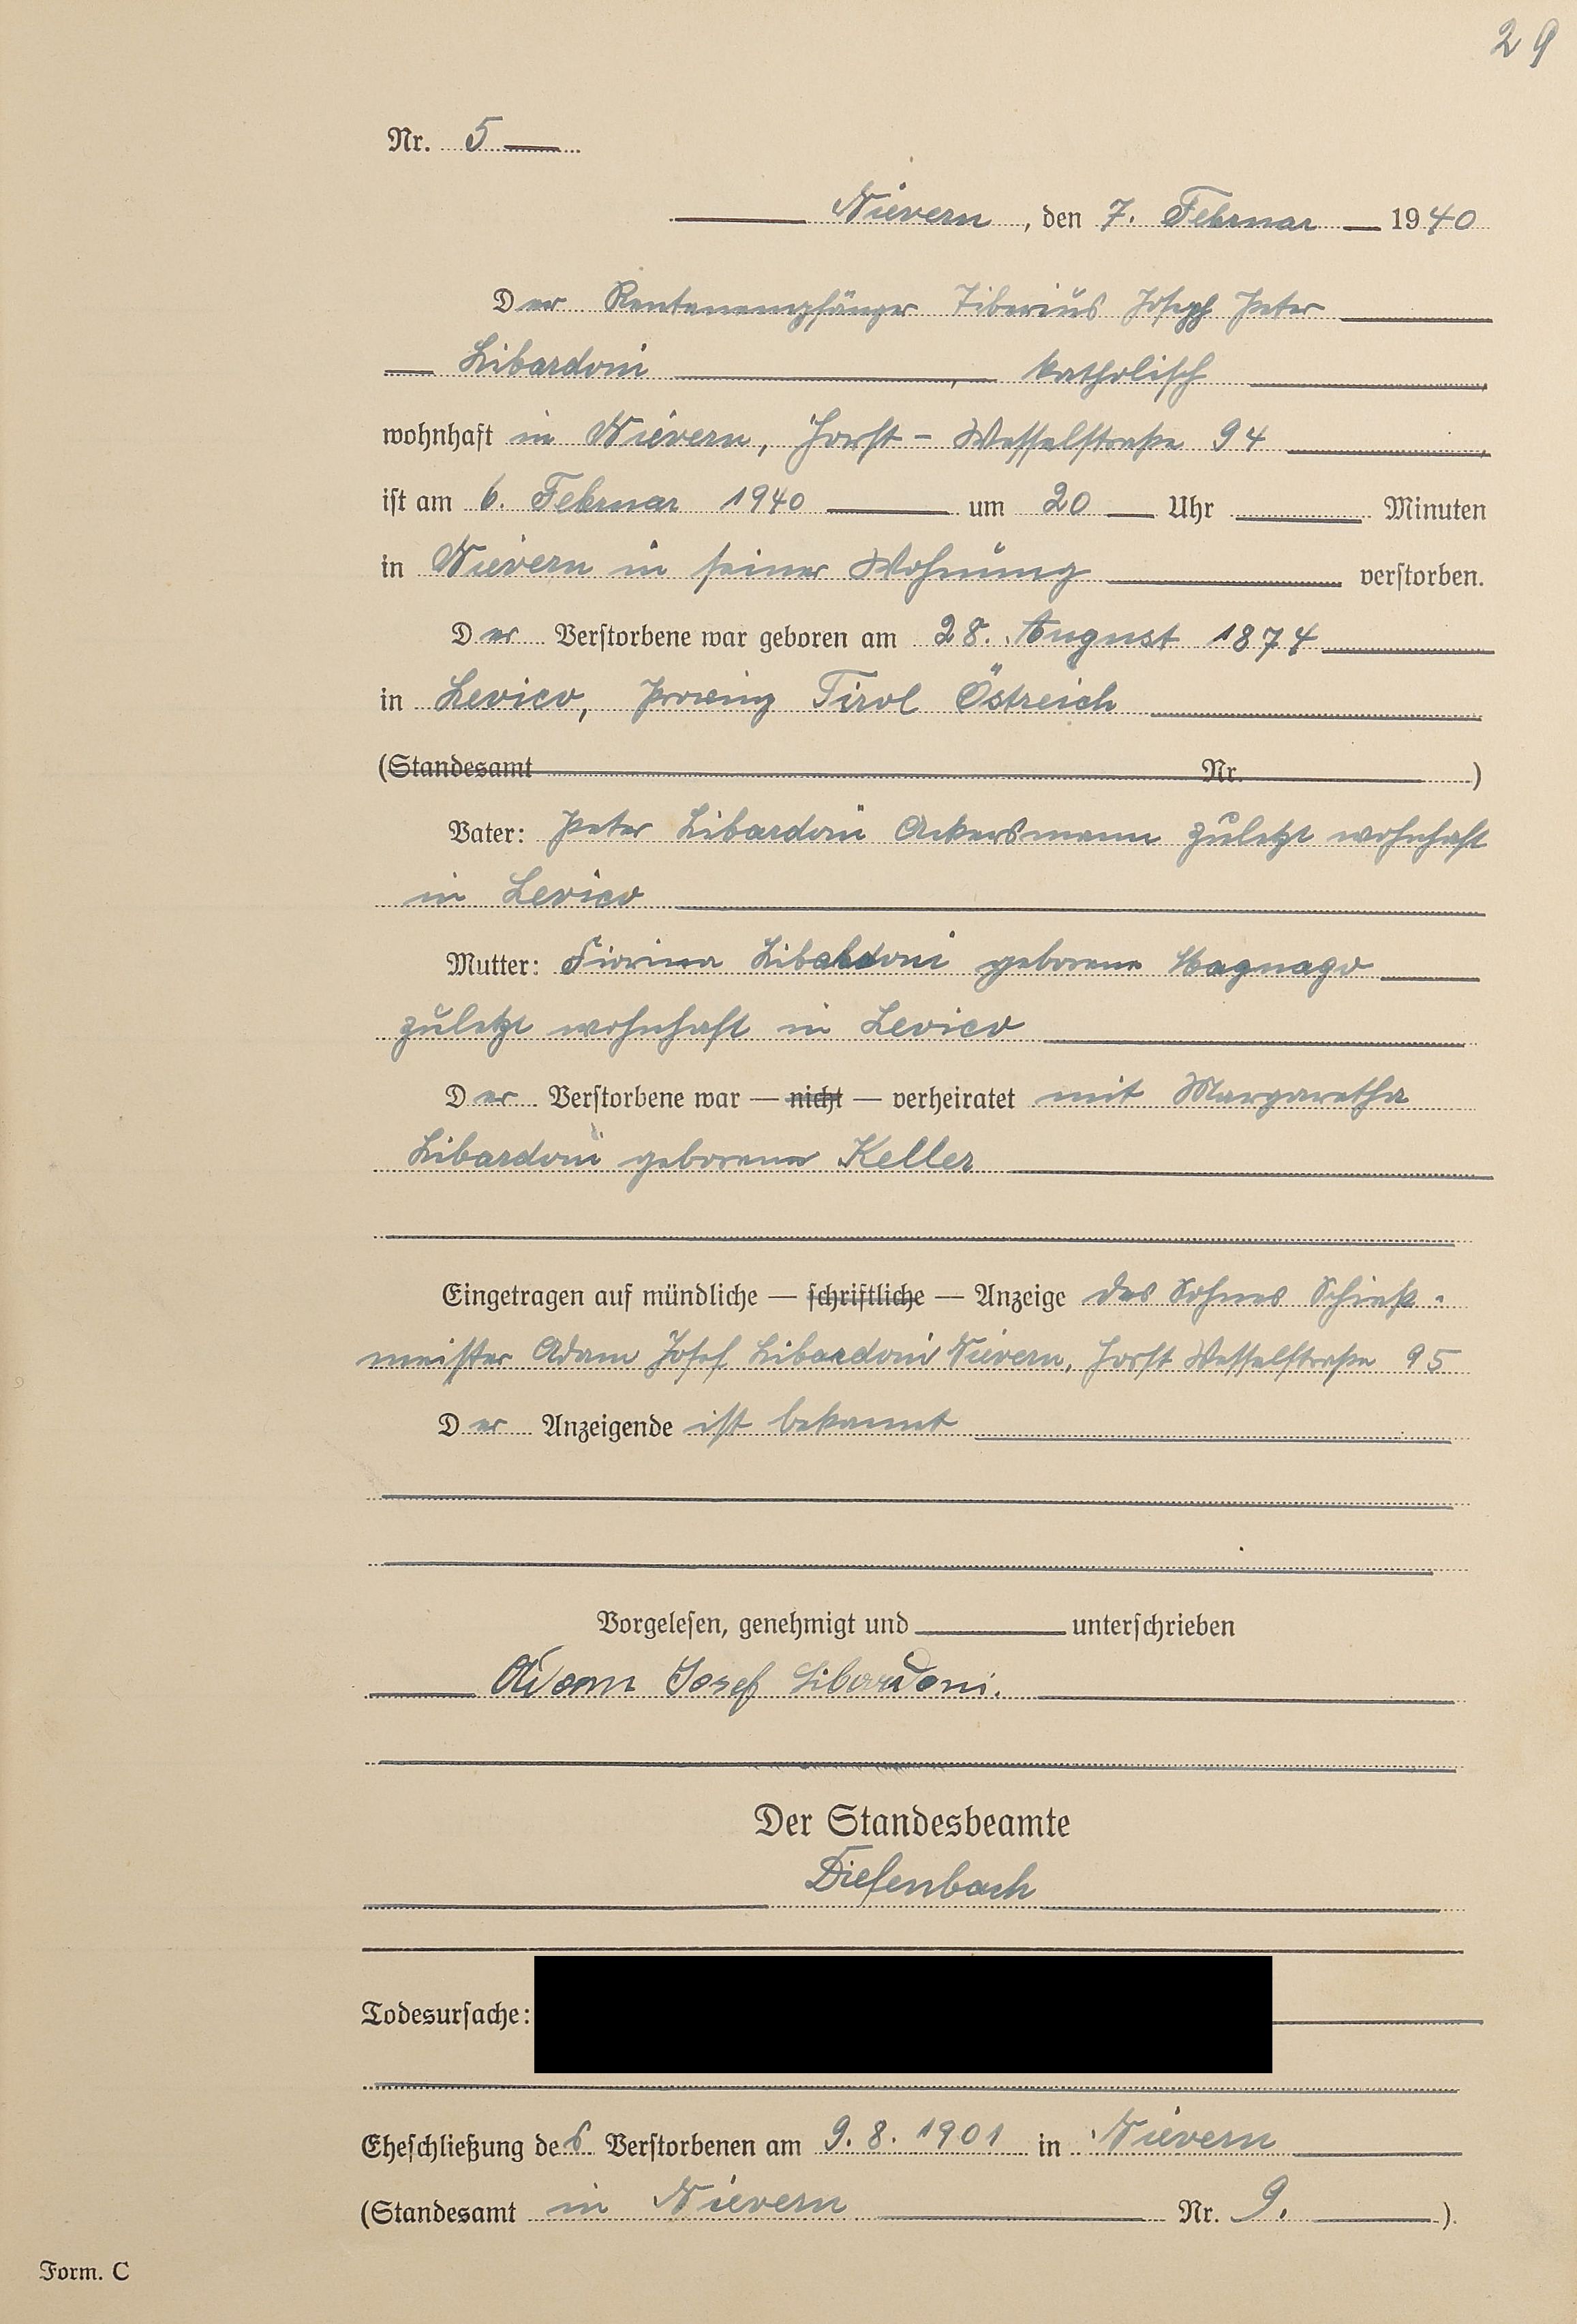 29
Nr. 5
Nievern, den 7. Februar 1940
Der Rentenempfänger Tiberius Joseph Peter
Libardoni, katholisch
wohnhaft in Nievern, Horst-Wesselstraße 94
ist am 6. Februar 1940 um 20 Uhr Minuten
in Nievern in seiner Wohnung verstorben.
Der Verstorbene war geboren am 28. August 1874
in Levico, Provinz Tirol Östreich
(Standesamt Nr. )
Vater: Peter Libardoni Ackersmann zuletzt wohnhaft
in Levico
Mutter: Fiorina Libardoni geborene
zuletzt wohnhaft in Levico
Der Verstorbene war — nicht — verheiratet mit Margaretha
Libardoni geborene Keller
Eingetragen auf mündliche — schriftliche — Anzeige des Sohnes Schieß-
meister Adam Josef Libardoni Nievern, Horst Wesselstraße 95
Der Anzeigende ist bekannt
Vorgelesen, genehmigt und unterschrieben
Adam Josef Libardoni.
Der Standesbeamte
Diefenbach
Todesursache:
Eheschließung des Verstorbenen am 9.8.1901 in Nievern
(Standesamt in Nievern Nr. 9. ).
Form. C